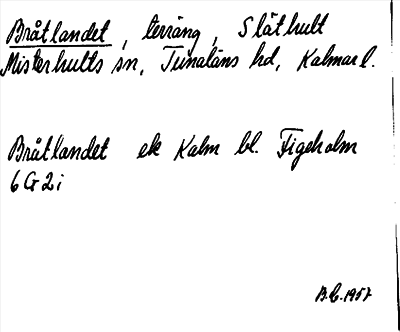 Bråtlandet, terräng, Släthult
Misterhults sn, Tunaläns hd, Kalmar l.
Bråtlandet ek Kalm bl. Figeholm
6G2i
B.C. 1957